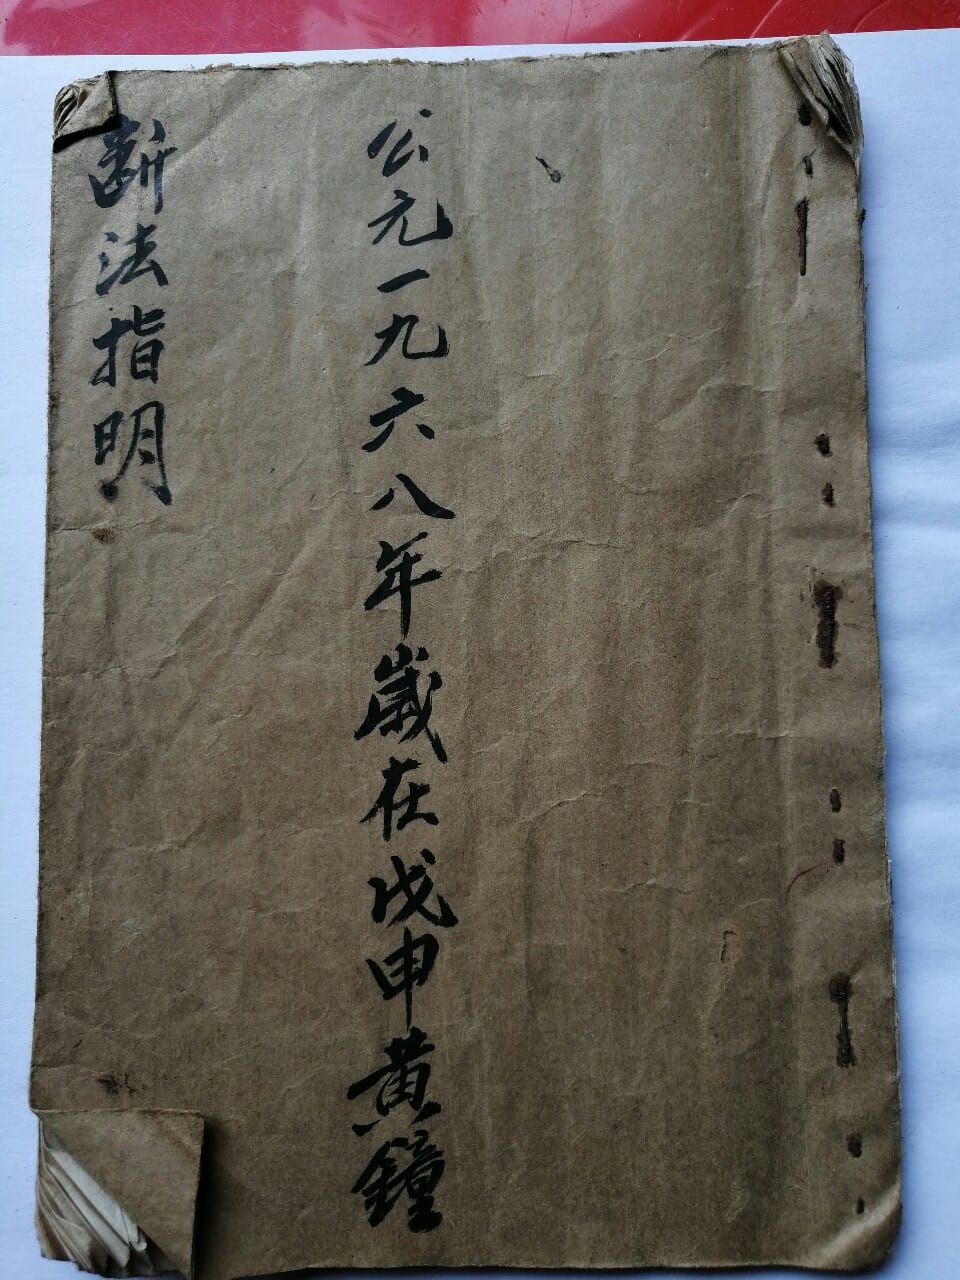 公元一九六八年歲在戊申黃鐘
断法指明